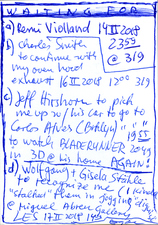 WAITING FOR
a) Remi Violland 14 II 2018
2359 @ 319
b) Charles Smith
to continue with
my oven hood
exhaust 16 II 2018 1200 319
c) Jeff Hirshorn to pick
me up w/ his car to go to
Carlos Alves (Botkyl) " "
1955
to watch BLADERUNNER 2049
in 3D @ his home AGAIN!
d) Wolfgang + Gisela Stähle
to recognize me (I kinda
"stalked" them in jogging digs
@ Miguel Abreu Gallery
LES 17 II 2018 14